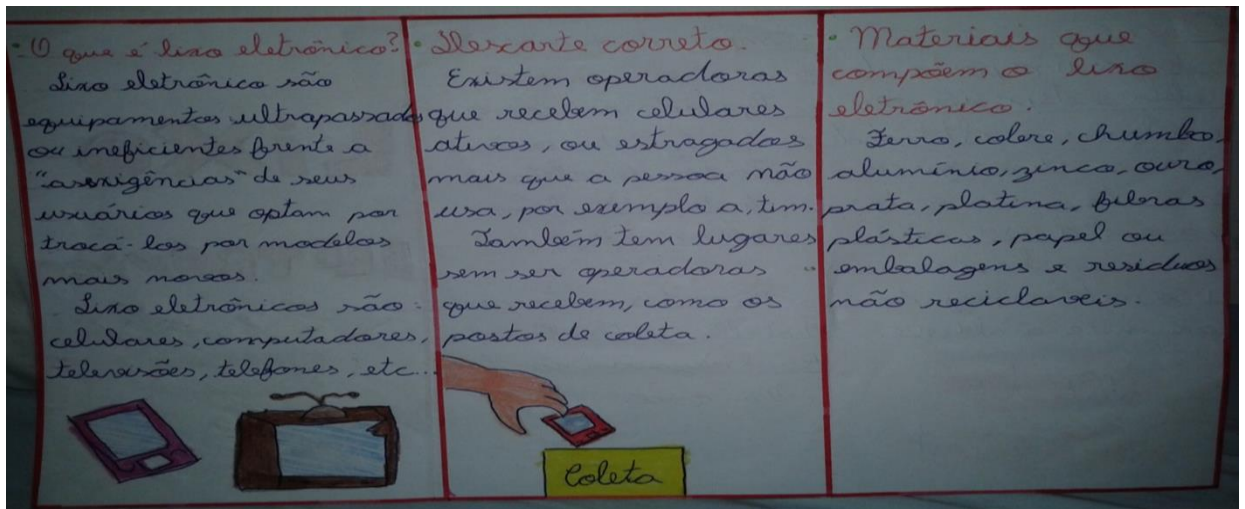 · O que é lixo eletrônico?
Lixo eletrônico são
equipamentos ultrapassados
ou ineficientes frente a
"asexigências" de seus
usuários que optam por
trocá-los por modelos
mais novos.
Lixo eletrônicos são:
celulares, computadores,
televisões, telefones, etc...
· Descarte correto.
Existem operadoras
que recebem celulares
ativos, ou estragados
mais que a pessoa não
usa, por exemplo a, tim.
Também tem lugares
sem ser operadoras
que recebem, como os
postos de coleta.
Coleta
· Materiais que
compõem o lixo
eletrônico.
Ferro, cobre, chumbo,
alumínio, zinco, ouro,
prata, platina, fibras
plásticas, papel ou
embalagens e residuos
não reciclaveis.